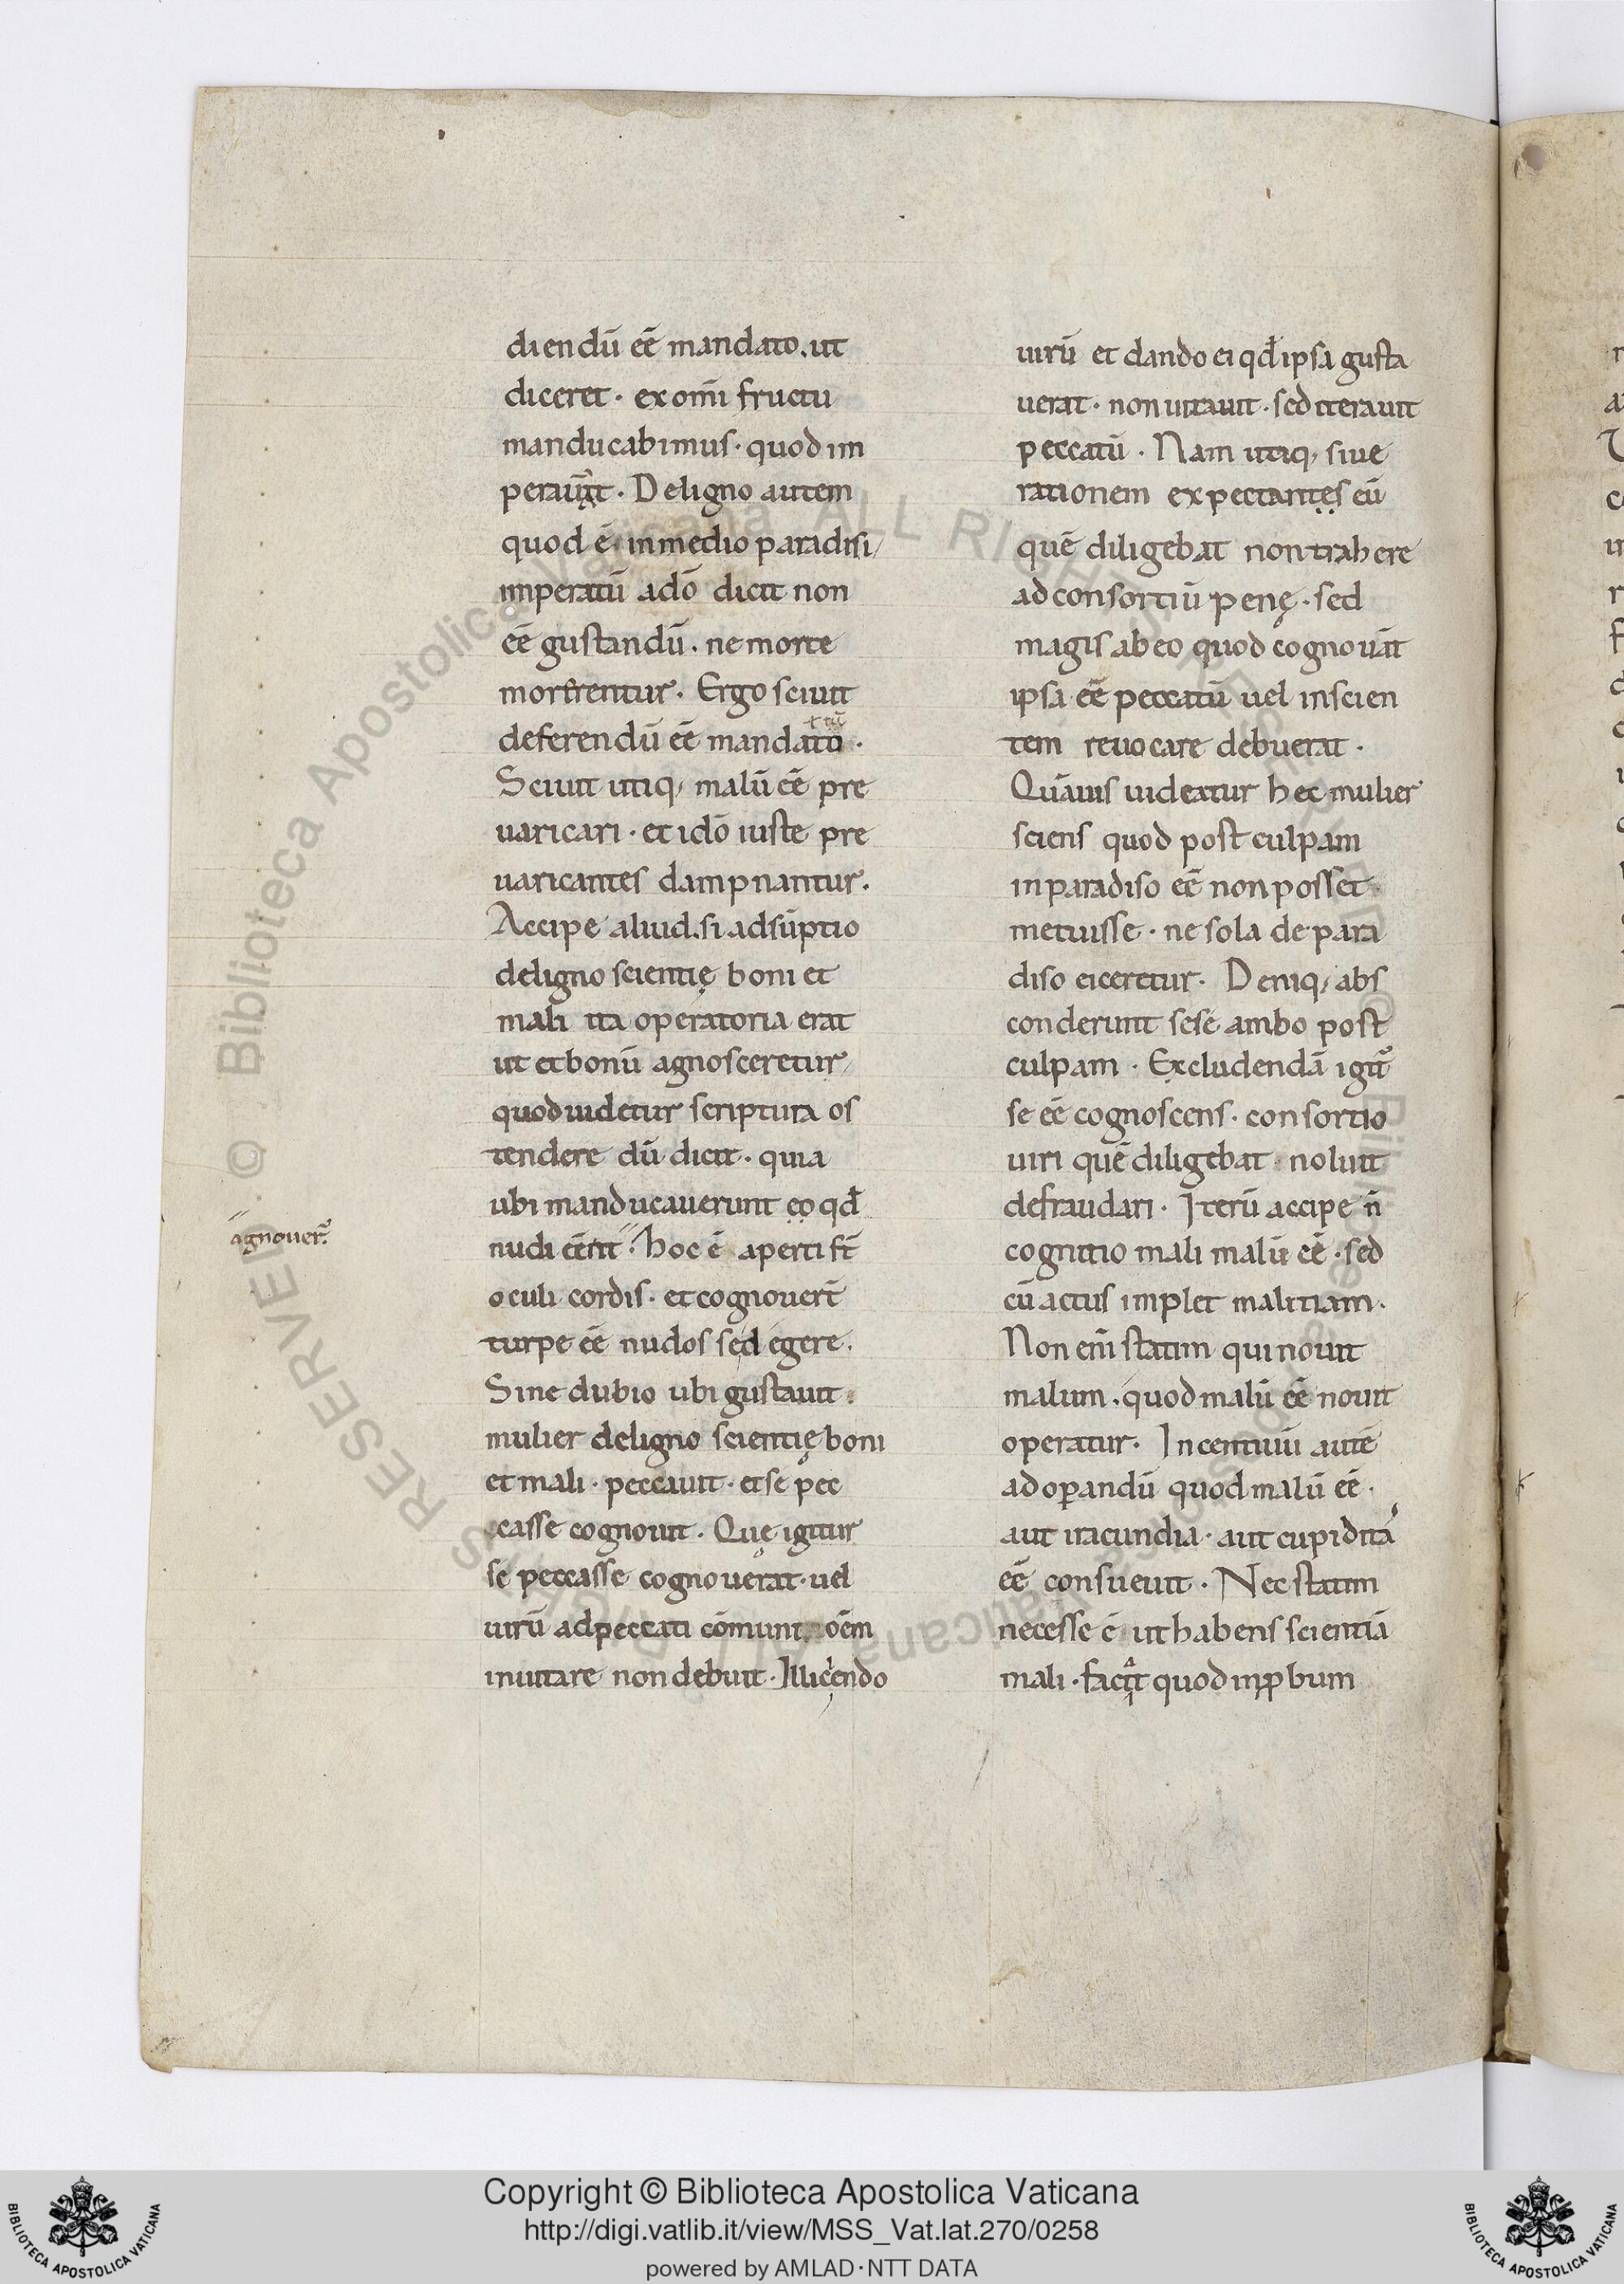 diendū eē mandato. ut
diceret · ex om̄i fructu
manducabimus · quod im
perauit · De ligno autem
quod ē in medio paradisi
imperatū a dō dicit non
eē gustandū · ne morte
morirentur · Ergo sciuit
deferendū eē mandato ·
Sciuit utiq; malū eē pre
uaricari · et idō iuste pre
uaricantes dampnantur ·
Accipe aliud. si adsūptio
de ligno scientię boni et
mali ita operatoria erat
ut et bonū agnosceretur
quod uidetur scriptura os
tendere dū dicit · quia
ubi manducauerunt eo qđ
agnouer̄
nudi eēnt · hoc ē aperti st̄
oculi cordis · et cognouer̄t
turpe eē nudos sed egere ·
Sine dubio ubi gustauit
mulier de ligno scientię boni
et mali · peccauit · et se pec
casse cognouit · Quę igitur
se peccasse cognouerat · uel
uirū ad peccati cōmuni oēm
inuitare non debuit · Illiciendo
uirū et dando ei qđ ipsa gusta
uerat · non uitauit · sed iterauit
peccatū · Nam utiq; siue
rationem expectantes eū
quē diligebat non trahere
ad consortiū penę · sed
magis ab eo quod cognouāt
ipsa eē peccatū uel inscien
tem reuocare debuerat ·
Quāuis uideatur hec mulier
sciens quod post culpam
in paradiso eē non posset
metuisse · ne sola de para
diso eiceretur · Deniq; abs
conderunt sese ambo post
culpam · Excludendā igit̄
se eē cognoscens · consortio
uiri quē diligebat noluit
defraudari · Iterū accipe n̄
cognitio mali malū eē · sed
cū actus implet malitiam ·
Non eni statim qui nouit
malum · quod malū eē nouit
operatur · Incentiuū autē
ad oꝑandū quod malū eē ·
aut iracundia · aut cupidita
eē consueuit · Nec statim
necesse ē ut habens scientiā
mali · faciat quod inꝓbum
© Biblioteca Apostolica Vaticana. ALL RIGHTS RESERVED
Copyright © Biblioteca Apostolica Vaticana
http://digi.vatlib.it/view/MSS_Vat.lat.270/0258
powered by AMLAD·NTT DATA
BIBLIOTECA APOSTOLICA VATICANA
BIBLIOTECA APOSTOLICA VATICANA